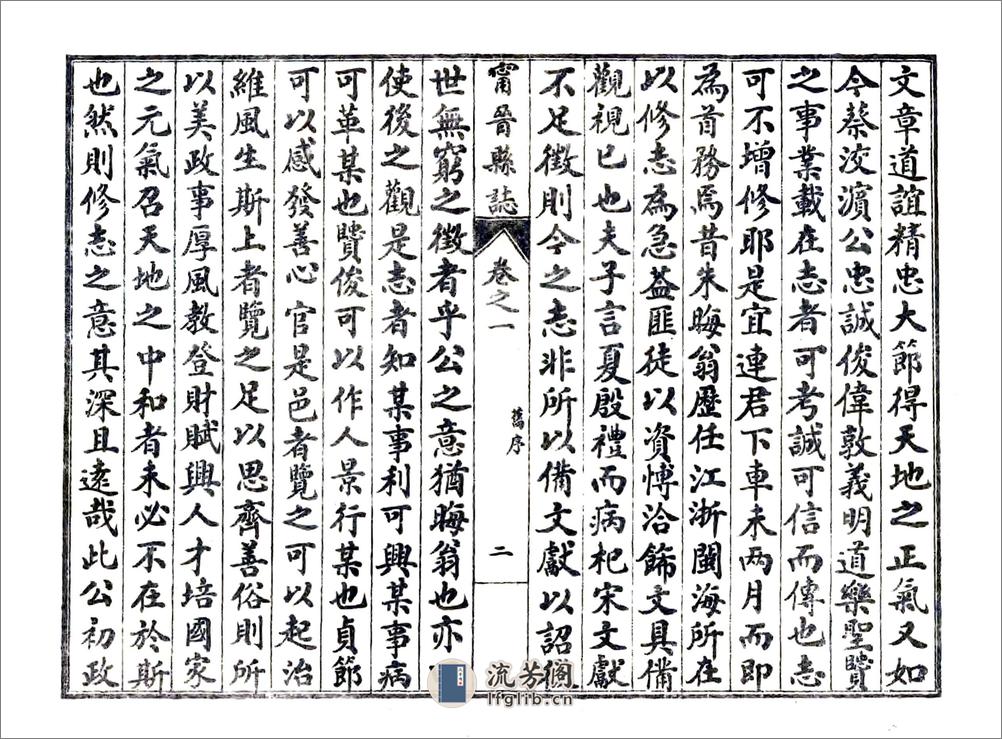 文章道誼精忠大節得天地之正氣又如
今蔡洨濵公忠誠俊偉敦義明道樂聖贒
之事業載在志者可考誠可信而傳也志
可不增修耶是宜連君下車未两月而即
為首務焉昔朱晦翁歷任江浙閩海所在
以修志為急葢匪徒以資愽洽飾文具備
觀視已也夫子言夏殷禮而病杞宋文獻
不足徵則今之志非所以備文獻以詔
甯晉縣誌
卷之一
舊序
二
世無窮之徵者乎公之意猶晦翁也亦
使後之觀是志者知某事利可興某事病
可革某也贒俊可以作人景行某也貞節
可以感發善心官是邑者覽之可以起治
維風生斯上者覽之足以思齊善俗則所
以美政事厚風教登財賦興人才培國家
之元氣召天地之中和者未必不在於斯
也然則修志之意其深且遠哉此公初政
流芳阁
lfglib.cn